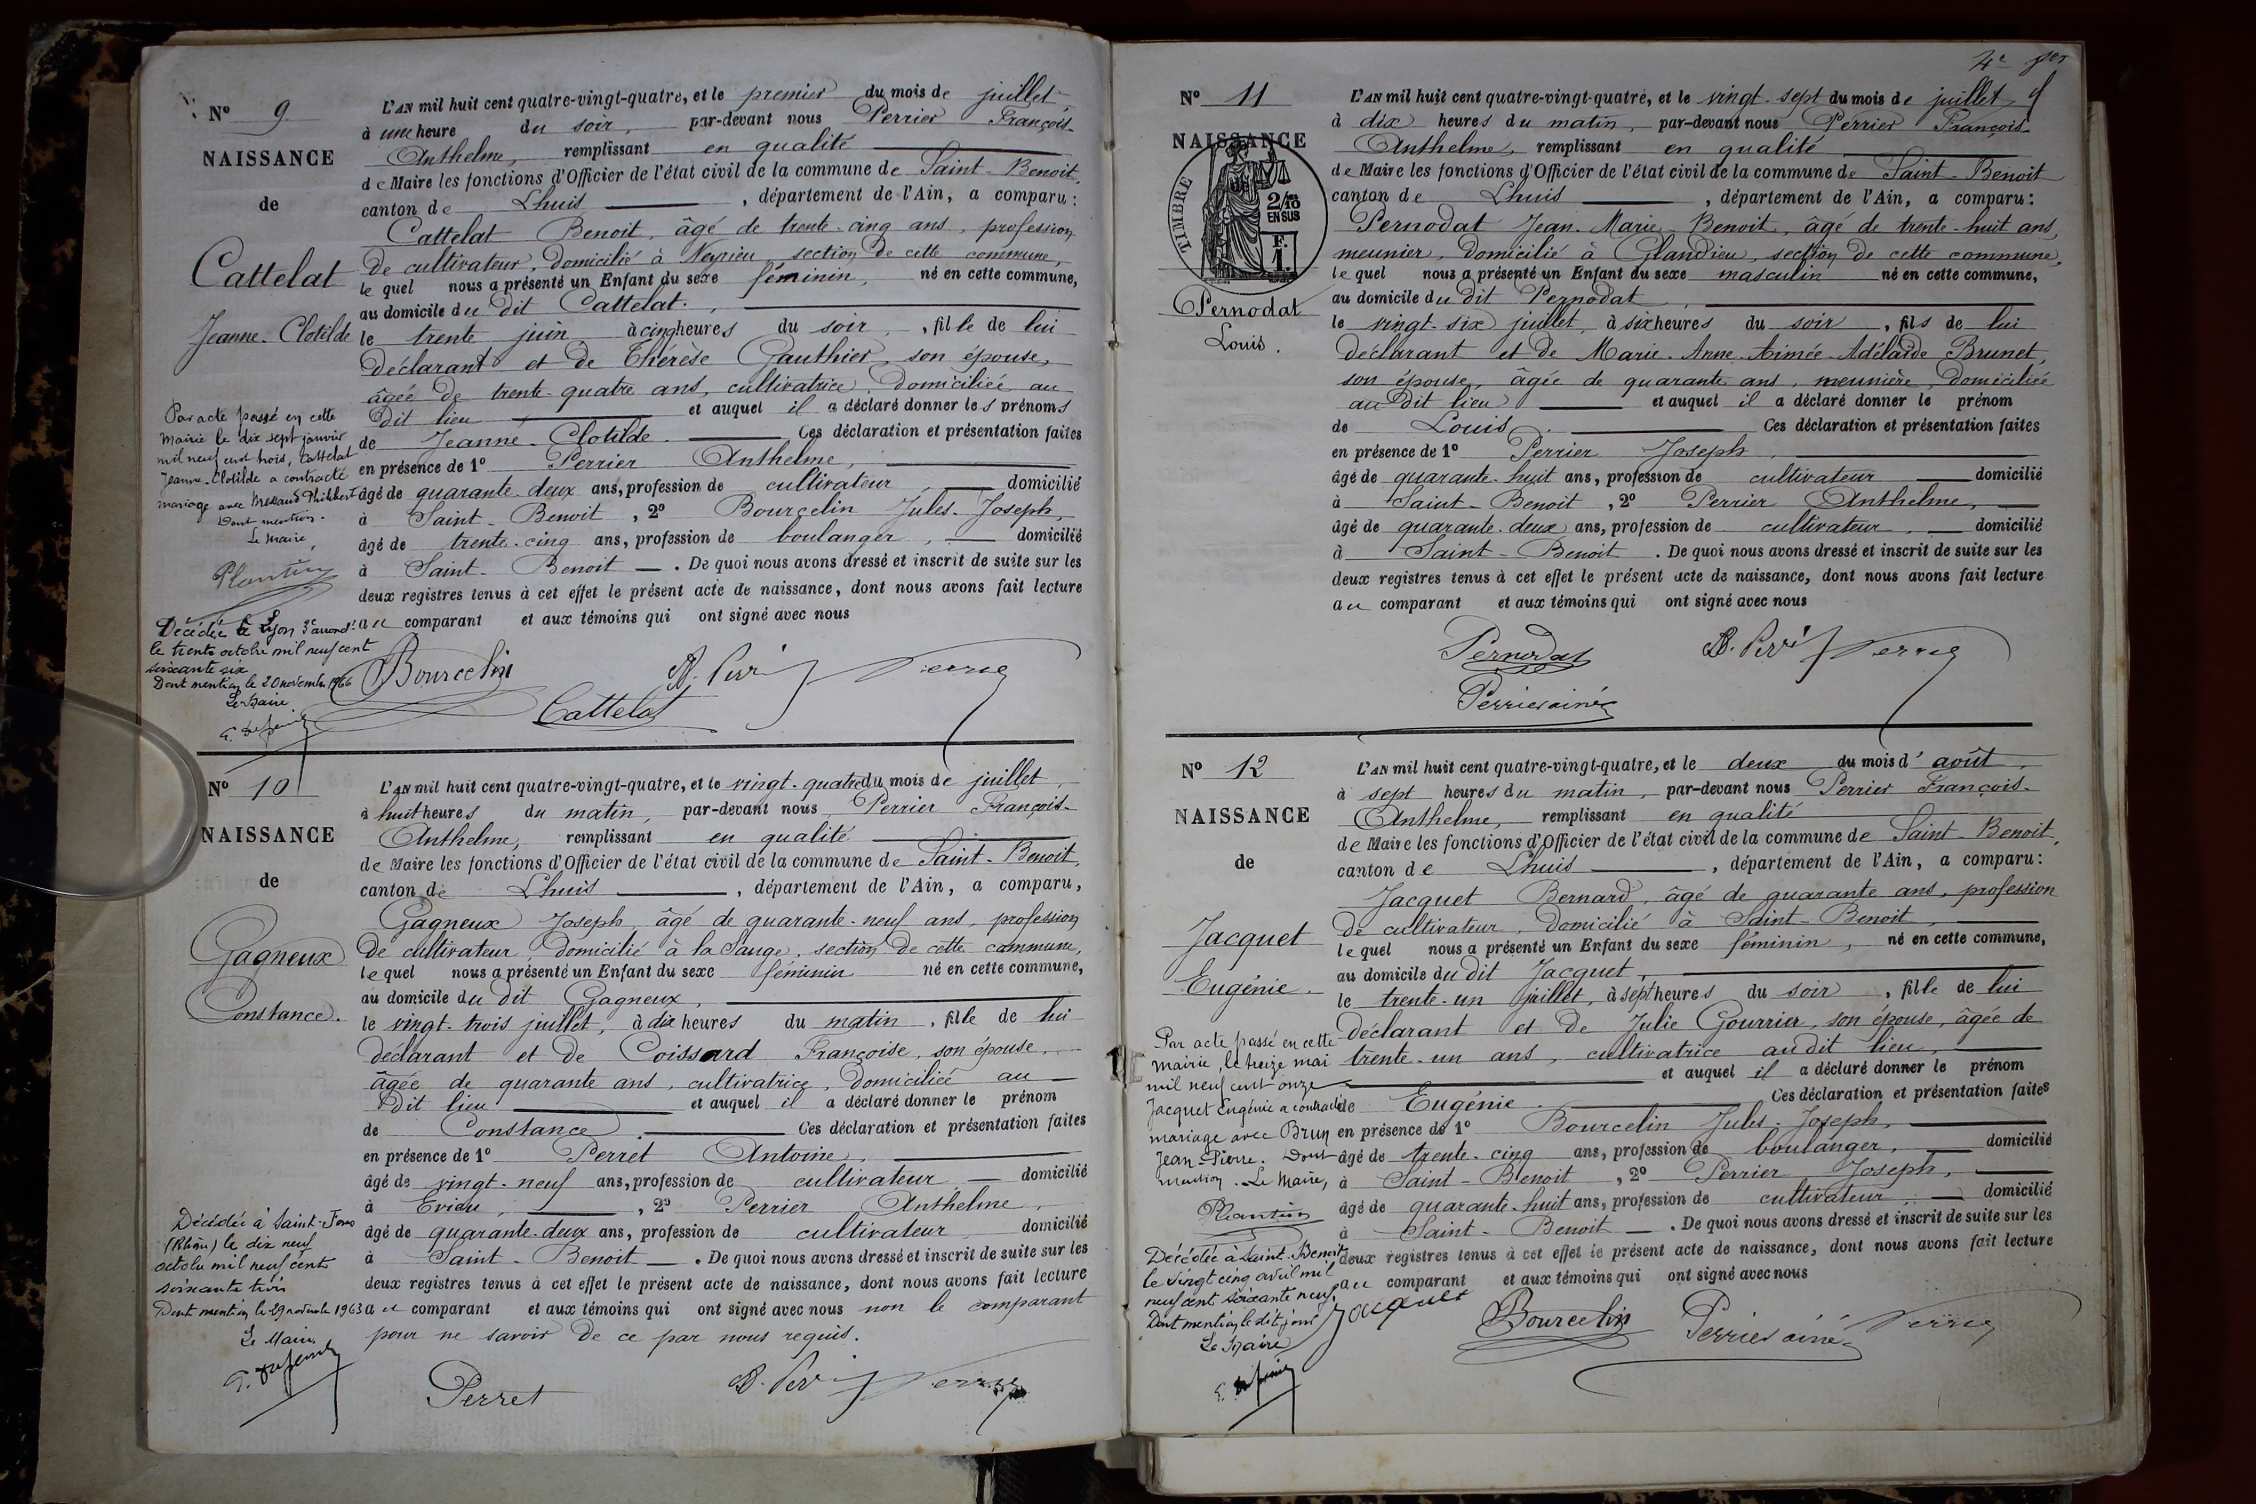 N° 9
NAISSANCE
de
Cattelat
Jeanne-Clotilde
Par acte passé en cette
mairie le dix sept janvier
mil neuf cent trois, Cattelat
Jeanne-Clotilde a contracté
mariage avec Philibert
Dont mention.
Le Maire,
Plantin
Décédée à Lyon 3e arrondt
le trente octobre mil neuf cent
soixante six
Dont mention le 20 novembre 1966
Le Maire
L'AN mil huit cent quatre-vingt-quatre, et le premier du mois de juillet,
à une heure du soir, par-devant nous Perrier François-
Anthelme, remplissant en qualité
de Maire les fonctions d'Officier de l'état civil de la commune de Saint-Benoit,
canton de Lhuis, département de l'Ain, a comparu:
Cattelat Benoit, âgé de trente-cinq ans, profession
de cultivateur, domicilié à Neyrieu, section de cette commune,
le quel nous a présenté un Enfant du sexe féminin, né en cette commune,
au domicile du dit Cattelat,
le trente juin, à cinq heures du soir, fille de lui
déclarant et de Thérèse Gauthier, son épouse,
âgée de trente-quatre ans, cultivatrice, domiciliée au
dit lieu et auquel il a déclaré donner les prénoms
de Jeanne-Clotilde. Ces déclaration et présentation faites
en présence de 1° Perrier Anthelme,
âgé de quarante-deux ans, profession de cultivateur, domicilié
à Saint-Benoit, 2° Bourcelin Jules-Joseph,
âgé de trente-cinq ans, profession de boulanger, domicilié
à Saint-Benoit. De quoi nous avons dressé et inscrit de suite sur les
deux registres tenus à cet effet le présent acte de naissance, dont nous avons fait lecture
au comparant et aux témoins qui ont signé avec nous
Bourcelin
Cattelat
N° 10
NAISSANCE
de
Gagneux
Constance.
Décédée à Saint-Fons
(Rhône) le dix neuf
octobre mil neuf cent
soixante trois
Dont mention le 29 novembre 1963
Le Maire
L'AN mil huit cent quatre-vingt-quatre, et le vingt-quatre du mois de juillet,
à huit heures du matin, par-devant nous Perrier François-
Anthelme, remplissant en qualité
de Maire les fonctions d'Officier de l'état civil de la commune de Saint-Benoit,
canton de Lhuis, département de l'Ain, a comparu,
Gagneux Joseph, âgé de quarante-neuf ans, profession
de cultivateur, domicilié à la Sauge, section de cette commune,
le quel nous a présenté un Enfant du sexe féminin né en cette commune,
au domicile du dit Gagneux,
le vingt-trois juillet, à dix heures du matin, fille de lui
déclarant et de Coissard Françoise, son épouse,
âgée de quarante ans, cultivatrice, domiciliée au
dit lieu et auquel il a déclaré donner le prénom
de Constance. Ces déclaration et présentation faites
en présence de 1° Perret Antoine,
âgé de vingt-neuf ans, profession de cultivateur, domicilié
à Evieu, 2° Perrier Anthelme,
âgé de quarante-deux ans, profession de cultivateur, domicilié
à Saint-Benoit. De quoi nous avons dressé et inscrit de suite sur les
deux registres tenus à cet effet le présent acte de naissance, dont nous avons fait lecture
au comparant et aux témoins qui ont signé avec nous non le comparant
pour ne savoir de ce par nous requis.
Perret
4e
N° 11
NAISSANCE
de
TIMBRE
2/10 EN SUS
F. 1.
Pernodat
Louis.
L'AN mil huit cent quatre-vingt-quatre, et le vingt-sept du mois de juillet,
à dix heures du matin, par-devant nous Perrier François-
Anthelme, remplissant en qualité
de Maire les fonctions d'Officier de l'état civil de la commune de Saint-Benoit
canton de Lhuis, département de l'Ain, a comparu:
Pernodat Jean-Marie-Benoit, âgé de trente-huit ans,
meunier, domicilié à Glandieu, section de cette commune,
le quel nous a présenté un Enfant du sexe masculin né en cette commune,
au domicile du dit Pernodat,
le vingt-six juillet, à six heures du soir, fils de lui
déclarant et de Marie-Anne-Aimée-Adélaïde Brunet,
son épouse, âgée de quarante ans, meunière, domiciliée
au dit lieu et auquel il a déclaré donner le prénom
de Louis. Ces déclaration et présentation faites
en présence de 1° Perrier Joseph,
âgé de quarante-huit ans, profession de cultivateur domicilié
à Saint-Benoit, 2° Perrier Anthelme,
âgé de quarante-deux ans, profession de cultivateur, domicilié
à Saint-Benoit. De quoi nous avons dressé et inscrit de suite sur les
deux registres tenus à cet effet le présent acte de naissance, dont nous avons fait lecture
au comparant et aux témoins qui ont signé avec nous
Pernodat
Perrier ainé
N° 12
NAISSANCE
de
Jacquet
Eugénie.
Par acte passé en cette
mairie, le treize mai
mil neuf cent onze
Jacquet Eugénie a contracté
mariage avec Brun
Jean-Pierre. Dont
mention. Le Maire,
Plantin
Décédée à Saint-Benoit
le vingt cinq avril mil
neuf cent soixante neuf.
Dont mention le dit jour
Le Maire
L'AN mil huit cent quatre-vingt-quatre, et le deux du mois d'août,
à sept heures du matin, par-devant nous Perrier François-
Anthelme, remplissant en qualité
de Maire les fonctions d'Officier de l'état civil de la commune de Saint-Benoit,
canton de Lhuis, département de l'Ain, a comparu:
Jacquet Bernard, âgé de quarante ans, profession
de cultivateur, domicilié à Saint-Benoit,
le quel nous a présenté un Enfant du sexe féminin, né en cette commune,
au domicile du dit Jacquet,
le trente-un juillet, à sept heures du soir, fille de lui
déclarant et de Julie Gourrier, son épouse, âgée de
trente-un ans, cultivatrice au dit lieu,
et auquel il a déclaré donner le prénom
de Eugénie. Ces déclaration et présentation faites
en présence de 1° Bourcelin Jules-Joseph,
âgé de trente-cinq ans, profession de boulanger, domicilié
à Saint-Benoit, 2° Perrier Joseph,
âgé de quarante-huit ans, profession de cultivateur, domicilié
à Saint-Benoit. De quoi nous avons dressé et inscrit de suite sur les
deux registres tenus à cet effet le présent acte de naissance, dont nous avons fait lecture
au comparant et aux témoins qui ont signé avec nous
Jacquet
Bourcelin
Perrier ainé